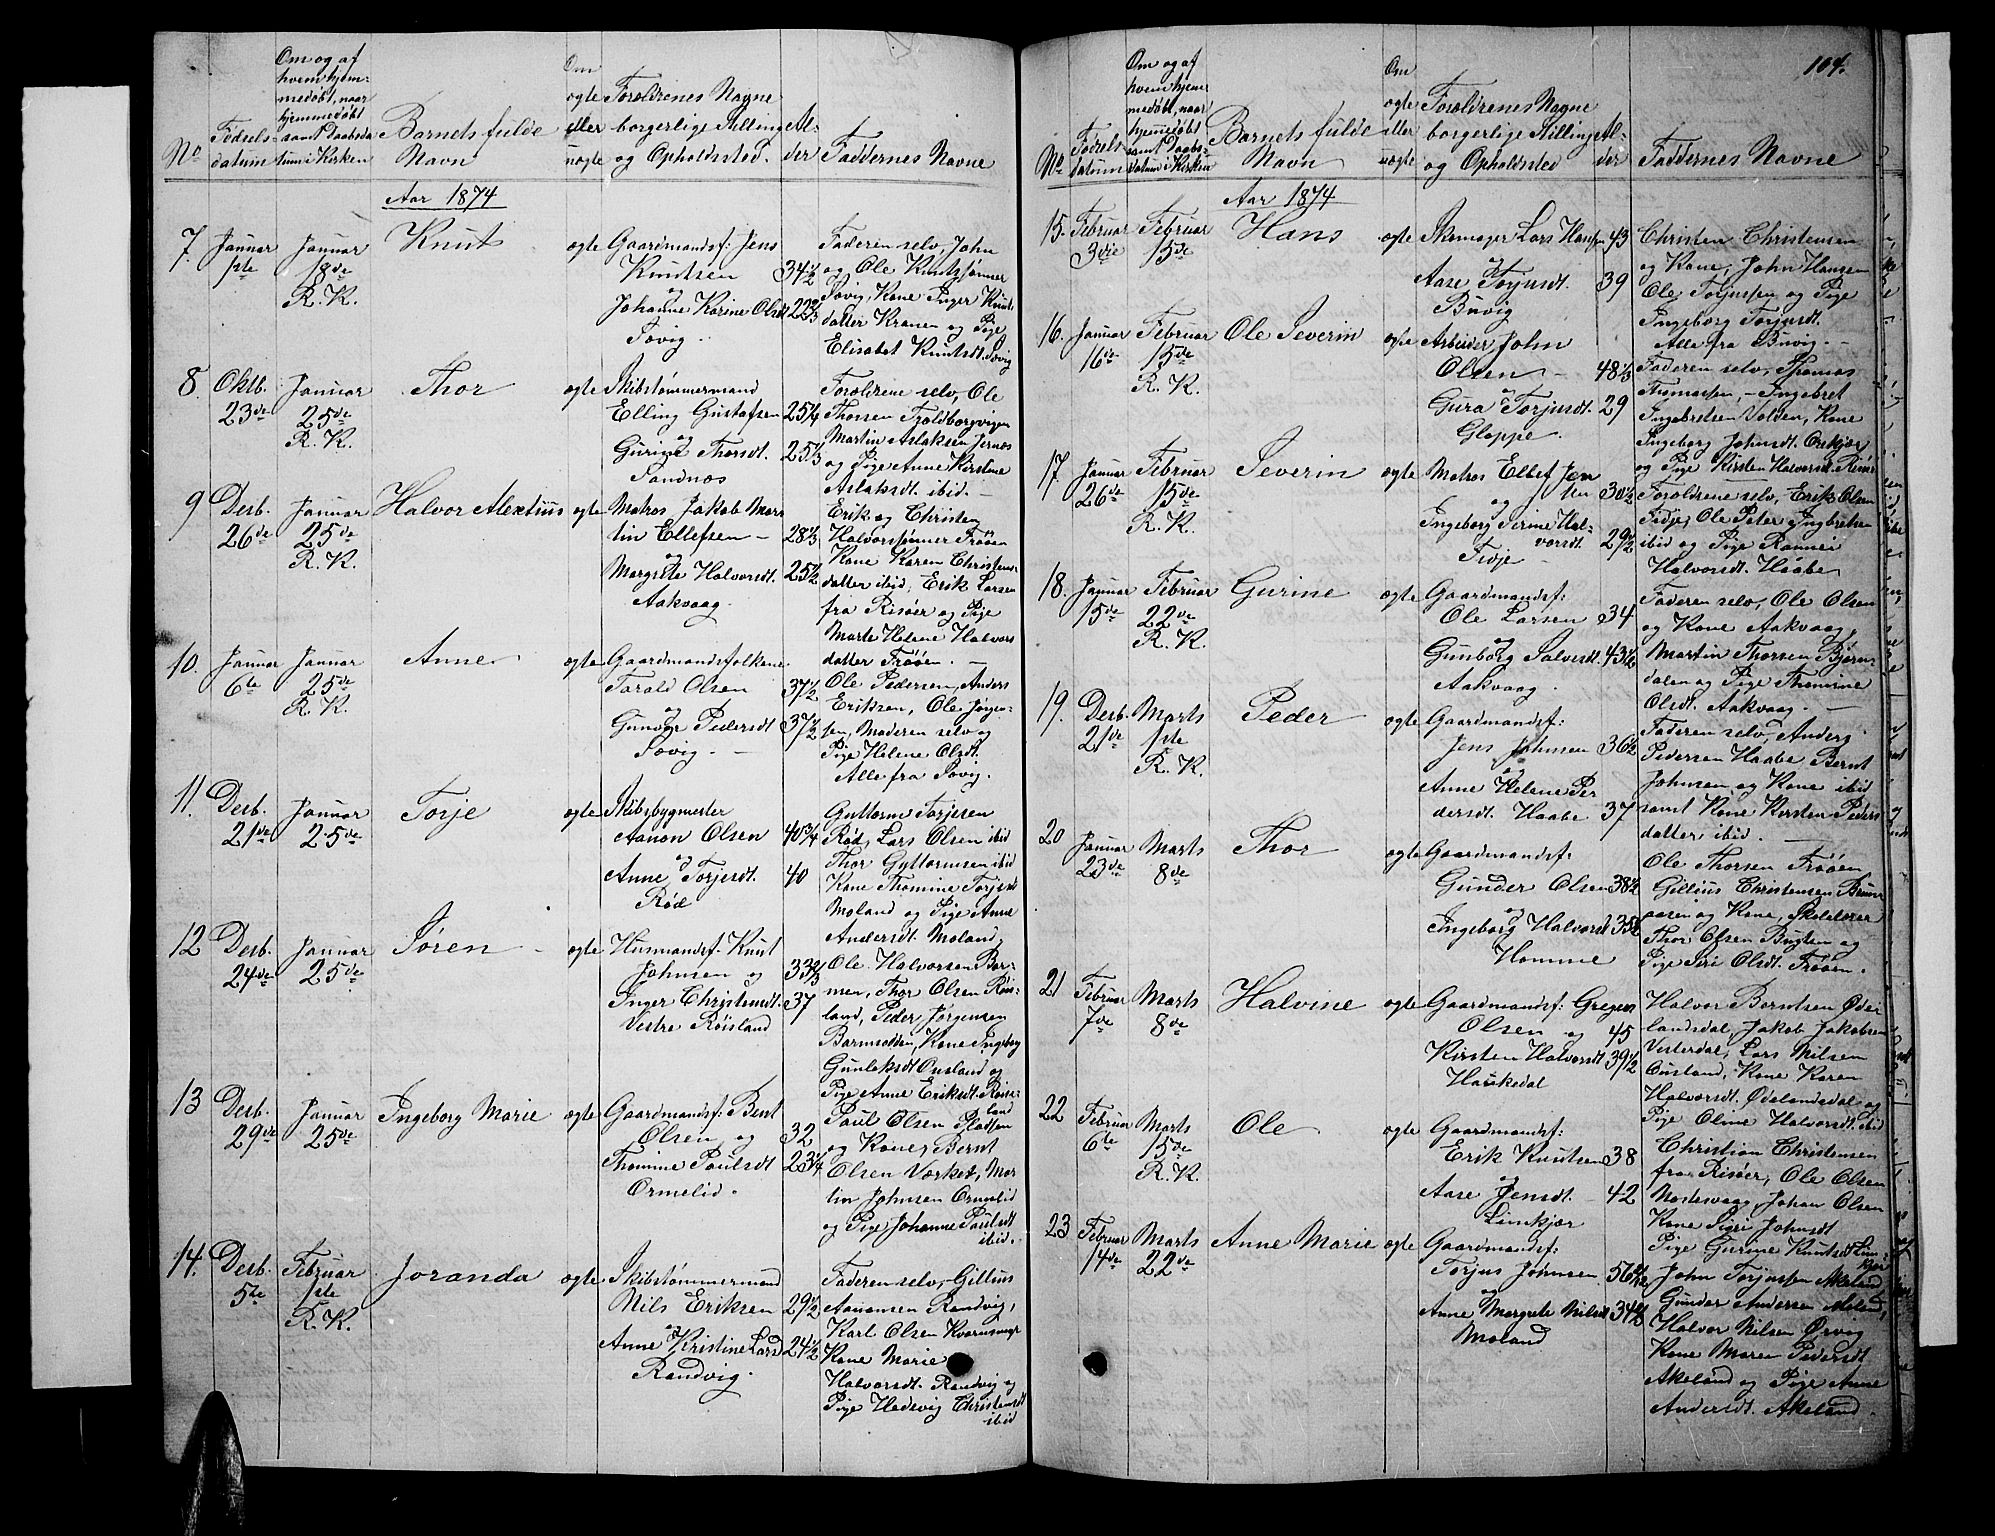 104.
No
Fødsels-
datum
Om og af
hvem hjem-
medøbt, naar
hjemmedøbt
samt Daabsda
tum i Kirken
Barnets fulde
Navn
Om
ægte
eller
uægte
Forældrenes Navne
borgerlige Stilling
og Opholdssted.
Al-
der
Faddernes Navne
Aar 1874
7. Januar
1ste
Januar
18de
R. K.
Knut
ægte
Gaardmandsf: Jens
Knutsen 34½
og
Johanne Karine Olsdt 22⅔
Søvig.
Faderen selv, John
og Ole Knutssønner
Søvig, Kone Inger Knuts
datter Kranen og Pige
Elisabet Knutsdt. Søvig
8. Oktb.
23de
Januar
25de
R. K.
Thor
ægte
Skibstømmermand
Elling Gustafsen 25¼
og
Gurine Thorsdt. 25⅓
Sandnæs
Forældrene selv, Ole
Thorsen
Martin Aslaksen Jernæs
og Pige Anne Kirstine
Aslaksdt. ibid. –
9 Desb.
26de
Januar
25de
R. K.
Halvor Alextius
ægte
Matros Jakob Mar
tin Ellefsen – 28⅓
og
Margrete Halvorsdt. 25½
Aakvaag.
Erik og Christen
Halvorssønner Trøen
Kone Karen Christens-
datter ibid, Erik Larsen
fra Risøer og Pige
Marte Helene Halvors
datter Frøen. –
10. Januar
6te
Januar
25de
R. K.
Anne
ægte
Gaardmandsfolkene
Tarald Olsen 37½
og
Gunder Pedersdt 37½
Søvig. –
Ole Pedersen, Anders
Eriksen, Ole Jørgen-
sen, Moderen selv og
Pige Helene Olsdt.
Alle fra Søvig.
11. Desb.
21de
Januar
25de
Torje
ægte
Skibsbygmester
Aanon Olsen 40¾
og
Anne Torjesdt. 40
Rød
Guttorm Torjesen
Rød, Lars Olsen ibid
Thor Gyttormsen ibid
Kone Thomine Torjesdt
Moland og Pige Anne
Andersdt. Moland,
12 Desb.
24de
Januar
25de
Søren –
ægte
Husmandsf. Knut
Johnsen og 33⅔
Inger Christensdt. 37
Vestre Røisland
Ole Halvorsen Bar-
men, Thor Olsen Røis-
land, Peder Jørgensen
Barmodden, Kone Ingeborg
Gunlaksdt Ousland og
Pige Anne Eriksdt. Røis-
land
13 Desb.
29de
Januar
25de
Ingeborg Marie
ægte
Gaardmandsf: Bent
Olsen og 32
Thomine Paulsdt 23¼
Ormelid.
Paul Olsen Pladsen
og Kone, Bernt
Olsen Værket, Mar
tin Johnsen Ormelid
og Pige Johanne Paulsdt
ibid.
14. Desb.
5te
Februar
1ste
R. K.
Joranda
ægte
Skibstømmermand
Nils Eriksen 29½
og
Anne Kristine Larsd 24½
Randvig.
Faderen selv, Gillius
Aanonsen Randvig,
Karl Olsen
Kone Marie
Halvorsdt. Randvig og
Pige Hedevig Christensdt
ibid
No
Fødsels-
datum
Om og af
hvem hjem
medøbt, naar
hjemmedøbt
samt Daabs-
datum i Kirken
Barnets fulde
Navn
Om
ægte
eller
uægte
Forældrenes Navne
borgerlige Stilling
og Opholdssted
Al-
der
Faddernes Navne
Aar 1874
15. Februar
3die
Februar
15de
Hans
ægte
Skomager Lars Hansen 43
og
Aase Torjusdt. 39
Buvig
Christen Christensen
og Kone, John Hansen
Ole Torjussen og Pige
Ingeborg Torjusdt.
Alle fra Buvig. –
16. Januar
16de
Februar
15de
R. K.
Ole Severin
ægte
Arbeider John
Olsen – 48⅓
og
Gura Torjusdt. 29
Gloppe.
Faderen selv, Thomas
Thomassen, – Ingebret
Ingebretsen Volden, Kone
Ingeborg Johnsdt. Oukjær
og Pige Kirsten Halvorsdt.
17. Januar
26de
Februar
15de
R. K.
Severin
ægte
Matros Ellef Jen
sen 30½
og
Ingeborg Sirine Hal-
vorsdt. 29½
Fidje
Forældrene selv, Erik Olsen
Fidje, Ole Peter Ingbretsen
ibid og Pige Rannei
Halvorsdt. Haabe
18. Januar
15de
Februar
22de
R. K.
Gurine
ægte
Gaardmandsf:
Ole Larsen 34
og
Gunborg Salvesdt. 43½
Aakvaag.
Faderen selv, Ole Olsen
og Kone Aakvaag,
Martin Thorsen Bjørn-
dalen og Pige Thomine
Olsdt. Aakvaag. –
19. Desb.
21de
Marts
1ste
R. K.
Peder
ægte
Gaardmandsf:
Jens Johnsen 36½
og
Anne Helene Pe
dersdt. Haabe 37
Faderen selv, Anders
Pedersen Haabe Bernt
Johnsen og Kone ibid
samt Kone Kirsten Peders
datter ibid.
20 Januar
23de
Marts
8de
Thor
ægte
Gaardmandsf:
Gunder Olsen 38½
og
Ingeborg Halvorsdt 35½
Homme
Ole Thorsen Frøen
Gillius Christensen Bruun-
aasen og Kone, Skolelærer
Thor Olsen Bugten og
Pige Siri Olsdt. Frøen.
21 Februar
7de
Marts
8de
Halvine
ægte
Gaardmandsf: Gregers
Olsen og 45
Kirsten Halvorsdt 39½
Hauskedal
Halvor Berntsen Øde
landsdal, Jakob Jakobsen
Vesterdal, Lars Nilsen
Ousland, Kone Karen
Halvorsdt. Ødelandsdal og
Pige Oline Halvorsdt. ibid
22 Februar
6te
Marts
15de
R. K.
Ole
ægte
Gaardmandsf:
Erik Knutsen 38
og
Aase Jensdt. 42
Limkjær
Christian Christensen
fra Risøer, Ole Olsen
Nødesvaag, Johan Olsen
Kone Sigri Johnsdt
Pige Gurine Knutsdt Lim-
kjær
23 Februar
14de
Marts
22de
Anne Marie
ægte
Gaardmandsf:
Torjus Johnsen 56
og
Anne Margrete Nilsdt 34½
Moland
John Torjussen Akeland
Gunder Andersen Akeland,
Halvor Nilsen Ørvig
Kone Maren Pedersdt
Akeland og Pige Anne
Andersdt. Akeland.